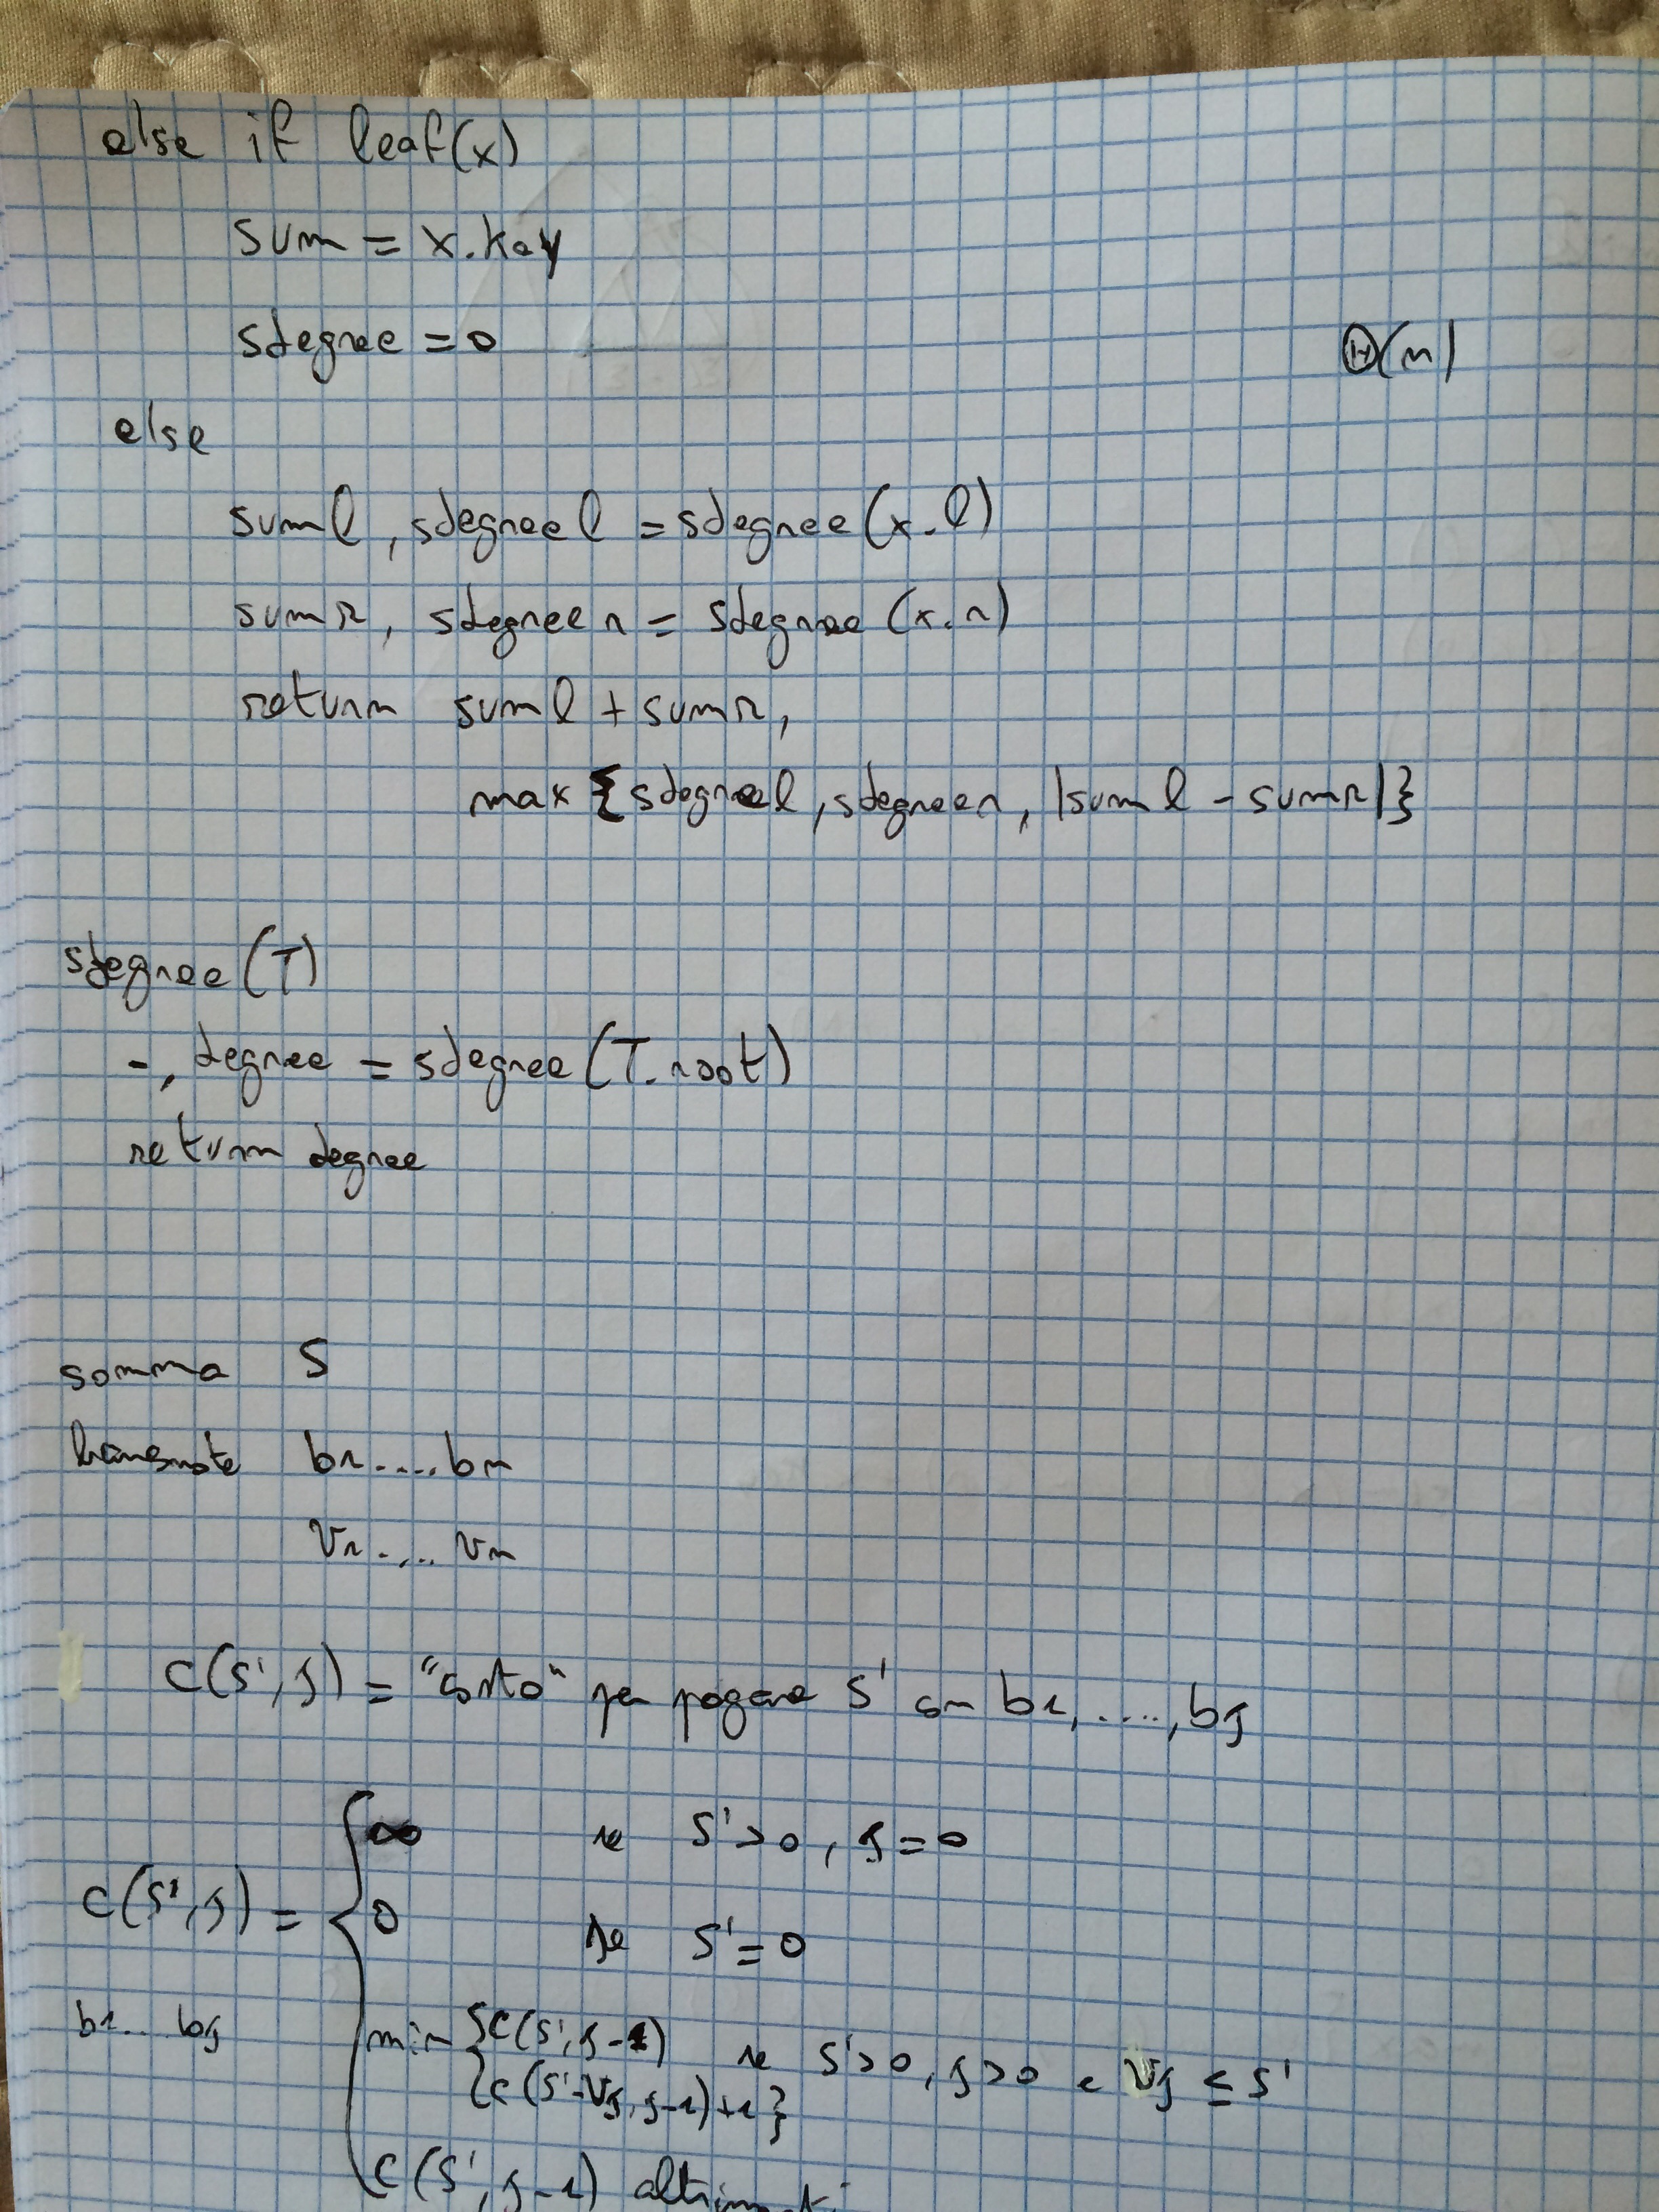 else if leaf(x)
sum = x.key
sdegree = 0
Θ(n)
else
suml, sdegreel = sdegree(x.l)
sumr, sdegreer = sdegree(x.r)
return suml + sumr,
max {sdegreel, sdegreer, |suml - sumr|}
sdegree(T)
-, degree = sdegree(T.root)
return degree
somma S
banconote b1....bn
v1.... vn
C(S', j) = "costo" per pagare S' con b1, ...., bj
C(S', j) = { ∞ se S'>0, j=0
0 se S'=0
b1... bj
min {C(S', j-1) se S'>0, j>0 e vj ≤ S'
{C(S'-vj, j-1)+1}
C(S', j-1) altrimenti